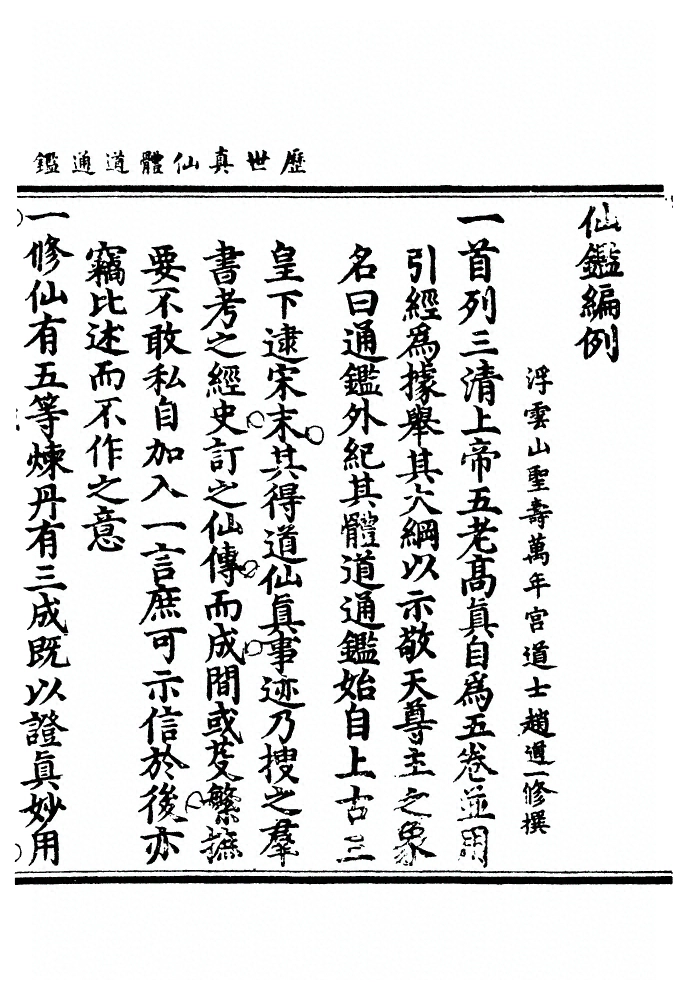 歷世真仙體道通鑑
仙鑑編例
浮雲山聖壽萬年宮道士趙道一修撰
一首列三清上帝五老高眞自爲五卷並用
引經爲據舉其大綱以示敬天尊主之象
名曰通鑑外紀其體道通鑑始自上古三
皇下逮宋末其得道仙眞事迹乃搜之羣
書考之經史訂之仙傳而成間或芟繁摭
要不敢私自加入一言庶可示信於後亦
竊比述而不作之意
一修仙有五等煉丹有三成既以證眞妙用